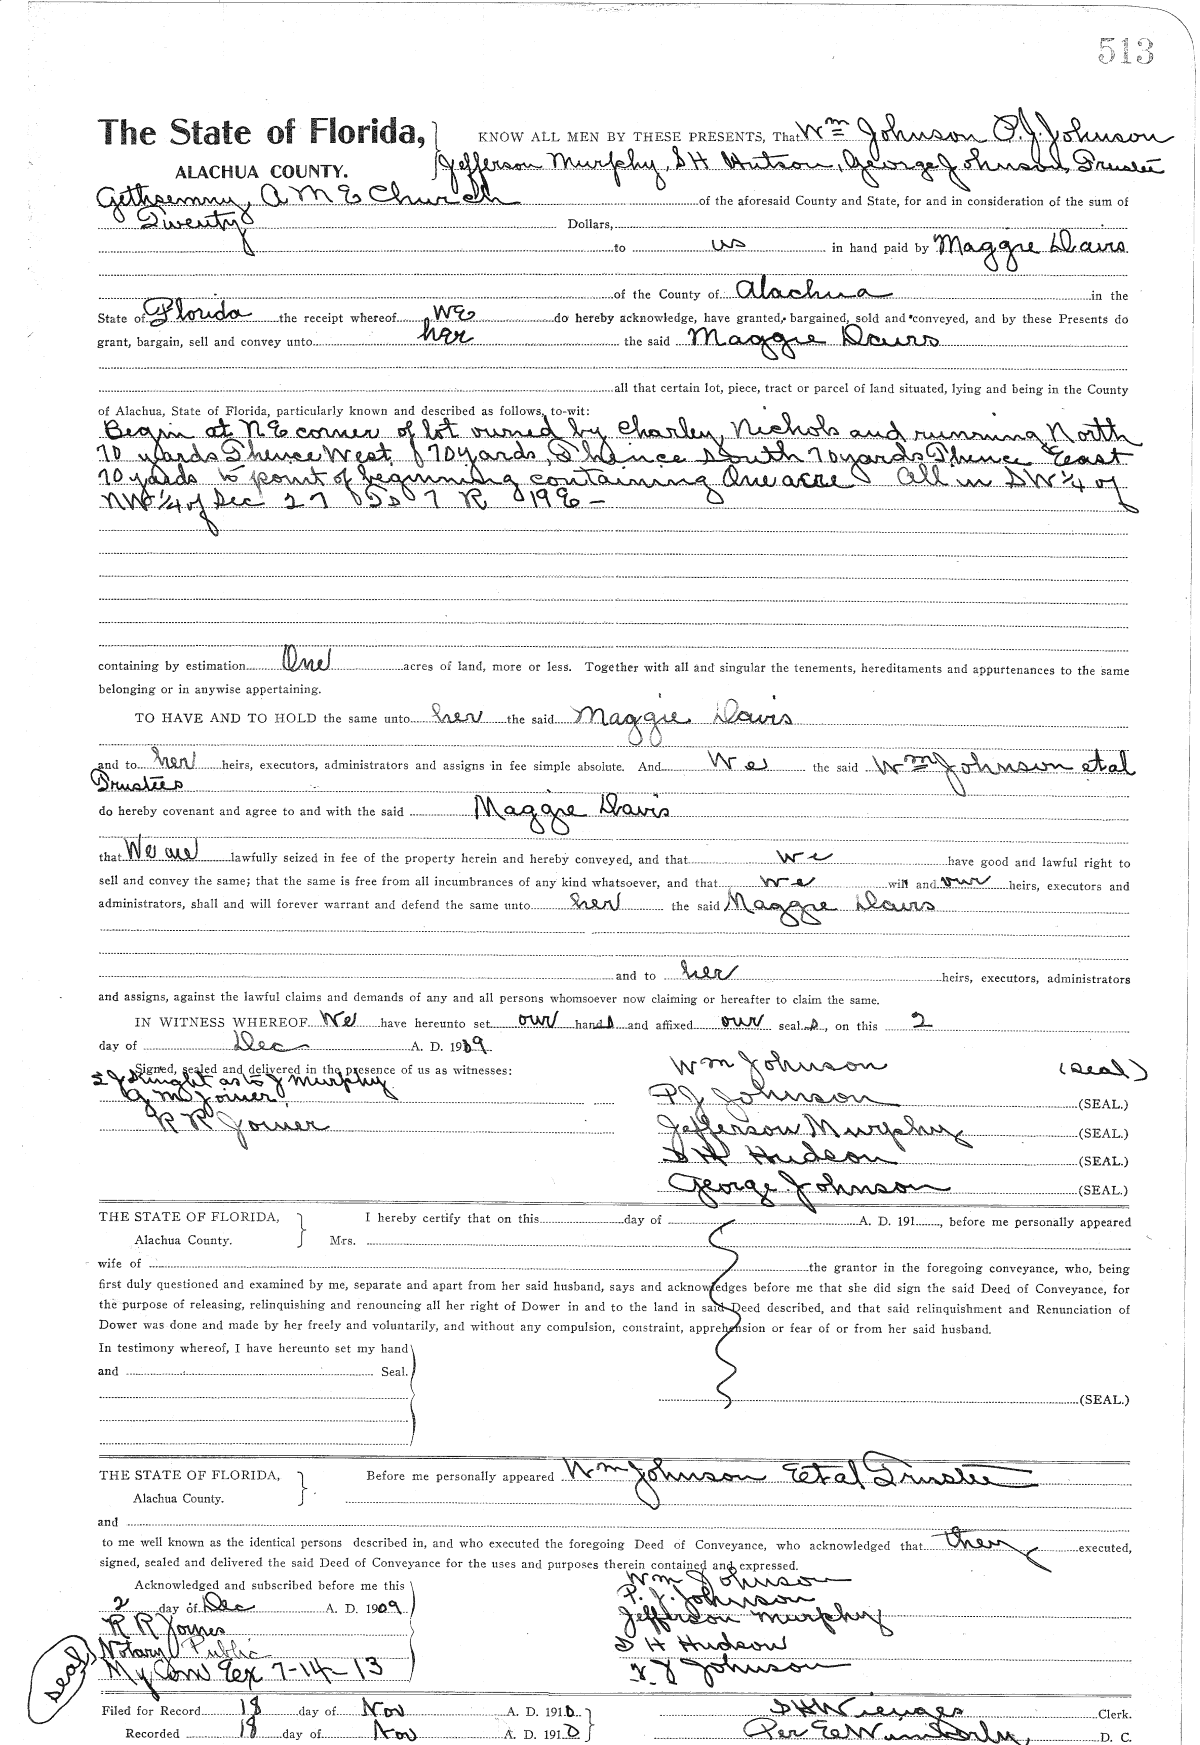 513
The State of Florida, KNOW ALL MEN BY THESE PRESENTS, That Wm Johnson P. J. Johnson
ALACHUA COUNTY. Jefferson Murphy, S H Hutson, George Johnson Trustee
Gethsemny, A M E Church of the aforesaid County and State, for and in consideration of the sum of
Twenty Dollars,
to us in hand paid by Maggie Davis
of the County of Alachua in the
State of Florida the receipt whereof WE do hereby acknowledge, have granted, bargained, sold and conveyed, and by these Presents do
grant, bargain, sell and convey unto her the said Maggie Davis
all that certain lot, piece, tract or parcel of land situated, lying and being in the County
of Alachua, State of Florida, particularly known and described as follows, to-wit:
Begin at NE corner of lot owned by Charley Nichols and running North
70 yards Thence West 70 yards, Thence South 70 yards Thence East
70 yards to point of beginning containing One acre All in SW 1/4 of
NW 1/4 of Sec 27 Ts 7 R 19E -
containing by estimation One acres of land, more or less. Together with all and singular the tenements, hereditaments and appurtenances to the same
belonging or in anywise appertaining.
TO HAVE AND TO HOLD the same unto her the said Maggie Davis
and to her heirs, executors, administrators and assigns in fee simple absolute. And We the said Wm Johnson et al
Trustees
do hereby covenant and agree to and with the said Maggie Davis
that We are lawfully seized in fee of the property herein and hereby conveyed, and that we have good and lawful right to
sell and convey the same; that the same is free from all incumbrances of any kind whatsoever, and that we will and our heirs, executors and
administrators, shall and will forever warrant and defend the same unto her the said Maggie Davis
and to her heirs, executors, administrators
and assigns, against the lawful claims and demands of any and all persons whomsoever now claiming or hereafter to claim the same.
IN WITNESS WHEREOF We have hereunto set our hands and affixed our seals, on this 2
day of Dec A. D. 1909
Signed, sealed and delivered in the presence of us as witnesses: Wm Johnson (Seal)
as to J Murphy
G M Joiner P J Johnson (SEAL.)
R R Joiner Jefferson Murphy (SEAL.)
S H Hudson (SEAL.)
George Johnson (SEAL.)
THE STATE OF FLORIDA, I hereby certify that on this day of A. D. 191 , before me personally appeared
Alachua County. Mrs.
wife of the grantor in the foregoing conveyance, who, being
first duly questioned and examined by me, separate and apart from her said husband, says and acknowledges before me that she did sign the said Deed of Conveyance, for
the purpose of releasing, relinquishing and renouncing all her right of Dower in and to the land in said Deed described, and that said relinquishment and Renunciation of
Dower was done and made by her freely and voluntarily, and without any compulsion, constraint, apprehension or fear of or from her said husband.
In testimony whereof, I have hereunto set my hand
and Seal.
(SEAL.)
THE STATE OF FLORIDA, Before me personally appeared Wm Johnson Et al Trustee
Alachua County.
and
to me well known as the identical persons described in, and who executed the foregoing Deed of Conveyance, who acknowledged that they executed,
signed, sealed and delivered the said Deed of Conveyance for the uses and purposes therein contained and expressed.
Acknowledged and subscribed before me this Wm Johnson
2 day of Dec A. D. 1909 P. J. Johnson
R R Joines Jefferson Murphy
Notary Public S H Hudson
Seal My Com Ex 7-14-13 Johnson
Filed for Record 18 day of Nov A. D. 1910 S H Wienges Clerk.
Recorded 18 day of Nov A. D. 1910 Per D. C.